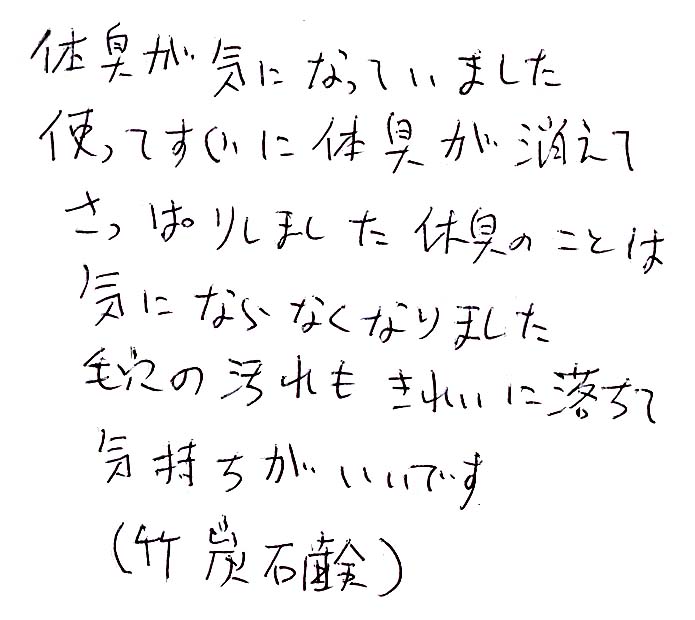 体臭が気になっていました
使ってすぐに体臭が消えて
さっぱりしました体臭のことは
気にならなくなりました
毛穴の汚れもきれいに落ちて
気持ちがいいです
(竹炭石鹸)